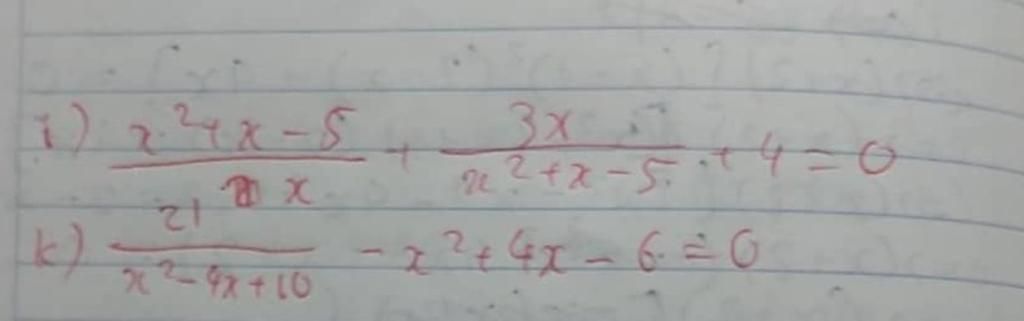 i) (x²+x-5)/x + 3x/(x²+x-5) + 4 = 0
k) 21/(x²-4x+10) - x²+4x-6=0